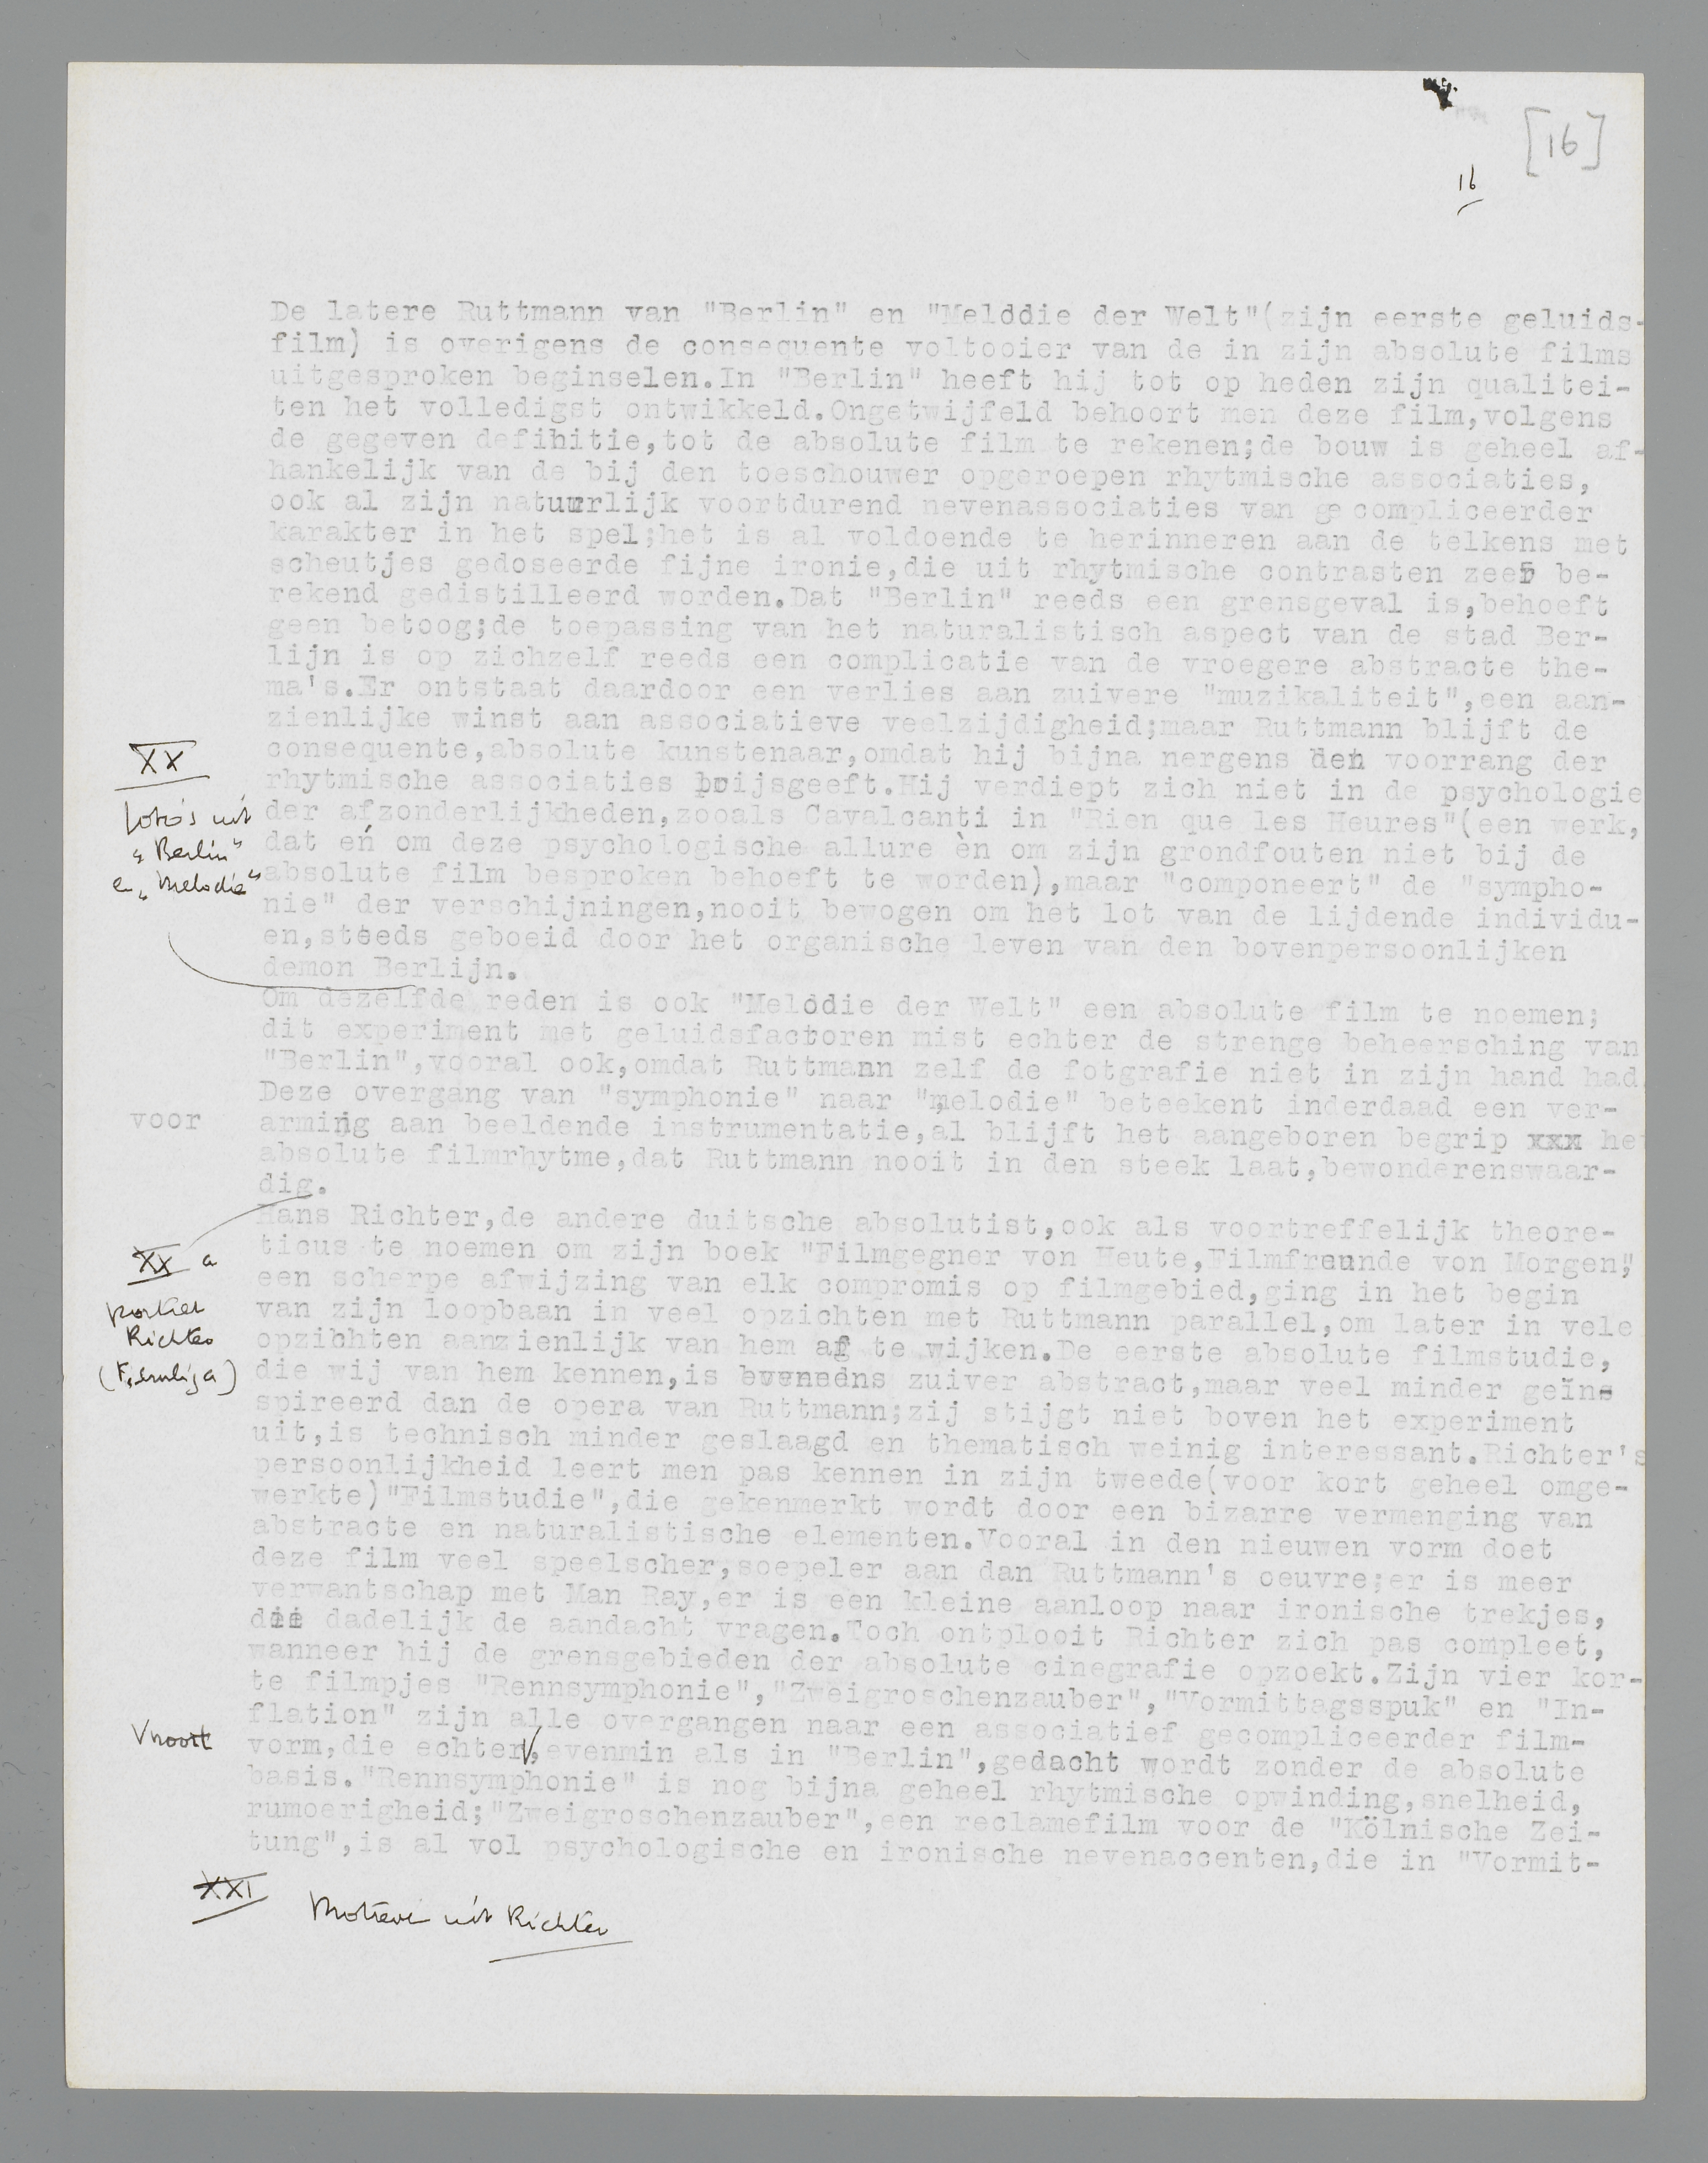 [16]
16
De latere Ruttmann van "Berlin" en "Melddie der Welt"(zijn eerste geluids-
film) is overigens de consequente voltooier van de in zijn absolute films
uitgesproken beginselen.In "Berlin" heeft hij tot op heden zijn qualitei-
ten het volledigst ontwikkeld.Ongetwijfeld behoort men deze film,volgens
de gegeven defihitie,tot de absolute film te rekenen;de bouw is geheel af-
hankelijk van de bij den toeschouwer opgeroepen rhytmische associaties,
ook al zijn natuurlijk voortdurend nevenassociaties van ge compliceerder
karakter in het spel;het is al voldoende te herinneren aan de telkens met
scheutjes gedoseerde fijne ironie,die uit rhytmische contrasten zeer be-
rekend gedistilleerd worden.Dat "Berlin" reeds een grensgeval is,behoeft
geen betoog;de toepassing van het naturalistisch aspect van de stad Ber-
lijn is op zichzelf reeds een complicatie van de vroegere abstracte the-
ma's.Er ontstaat daardoor een verlies aan zuivere "muzikaliteit",een aan-
zienlijke winst aan associatieve veelzijdigheid;maar Ruttmann blijft de
consequente,absolute kunstenaar,omdat hij bijna nergens den voorrang der
rhytmische associaties prijsgeeft.Hij verdiept zich niet in de psychologie
der afzonderlijkheden,zooals Cavalcanti in "Rien que les Heures"(een werk,
dat én om deze psychologische allure èn om zijn grondfouten niet bij de
absolute film besproken behoeft te worden),maar "componeert" de "sympho-
nie" der verschijningen,nooit bewogen om het lot van de lijdende individu-
en,steeds geboeid door het organische leven van den bovenpersoonlijken
demon Berlijn.
XX
foto's uit
"Berlin"
en "Melodie"
Om dezelfde reden is ook "Melodie der Welt" een absolute film te noemen;
dit experiment met geluidsfactoren mist echter de strenge beheersching van
"Berlin",vooral ook,omdat Ruttmann zelf de fotgrafie niet in zijn hand had
Deze overgang van "symphonie" naar "melodie" beteekent inderdaad een ver-
voor arming aan beeldende instrumentatie,al blijft het aangeboren begrip xxx het
absolute filmrhytme,dat Ruttmann nooit in den steek laat,bewonderenswaar-
dig.
Hans Richter,de andere duitsche absolutist,ook als voortreffelijk theore-
ticus te noemen om zijn boek "Filmgegner von Heute,Filmfreunde von Morgen",
een scherpe afwijzing van elk compromis op filmgebied,ging in het begin
van zijn loopbaan in veel opzichten met Ruttmann parallel,om later in vele
opzichten aanzienlijk van hem af te wijken.De eerste absolute filmstudie,
die wij van hem kennen,is eveneens zuiver abstract,maar veel minder geïns
spireerd dan de opera van Ruttmann;zij stijgt niet boven het experiment
uit,is technisch minder geslaagd en thematisch weinig interessant.Richter's
persoonlijkheid leert men pas kennen in zijn tweede(voor kort geheel omge-
werkte)"Filmstudie",die gekenmerkt wordt door een bizarre vermenging van
abstracte en naturalistische elementen.Vooral in den nieuwen vorm doet
deze film veel speelscher,soepeler aan dan Ruttmann's oeuvre;er is meer
verwantschap met Man Ray,er is een kleine aanloop naar ironische trekjes,
die dadelijk de aandacht vragen.Toch ontplooit Richter zich pas compleet,
wanneer hij de grensgebieden der absolute cinegrafie opzoekt.Zijn vier kor-
te filmpjes "Rennsymphonie","Zweigroschenzauber","Vormittagsspuk" en "In-
flation" zijn alle overgangen naar een associatief gecompliceerder film-
vorm,die echter,evenmin als in "Berlin",gedacht wordt zonder de absolute
basis."Rennsymphonie" is nog bijna geheel rhytmische opwinding,snelheid,
rumoerigheid;"Zweigroschenzauber",een reclamefilm voor de "Kölnische Zei-
tung",is al vol psychologische en ironische nevenaccenten,die in "Vormit-
XX a
portret
Richter
nooit
XXI
Motieven uit Richter